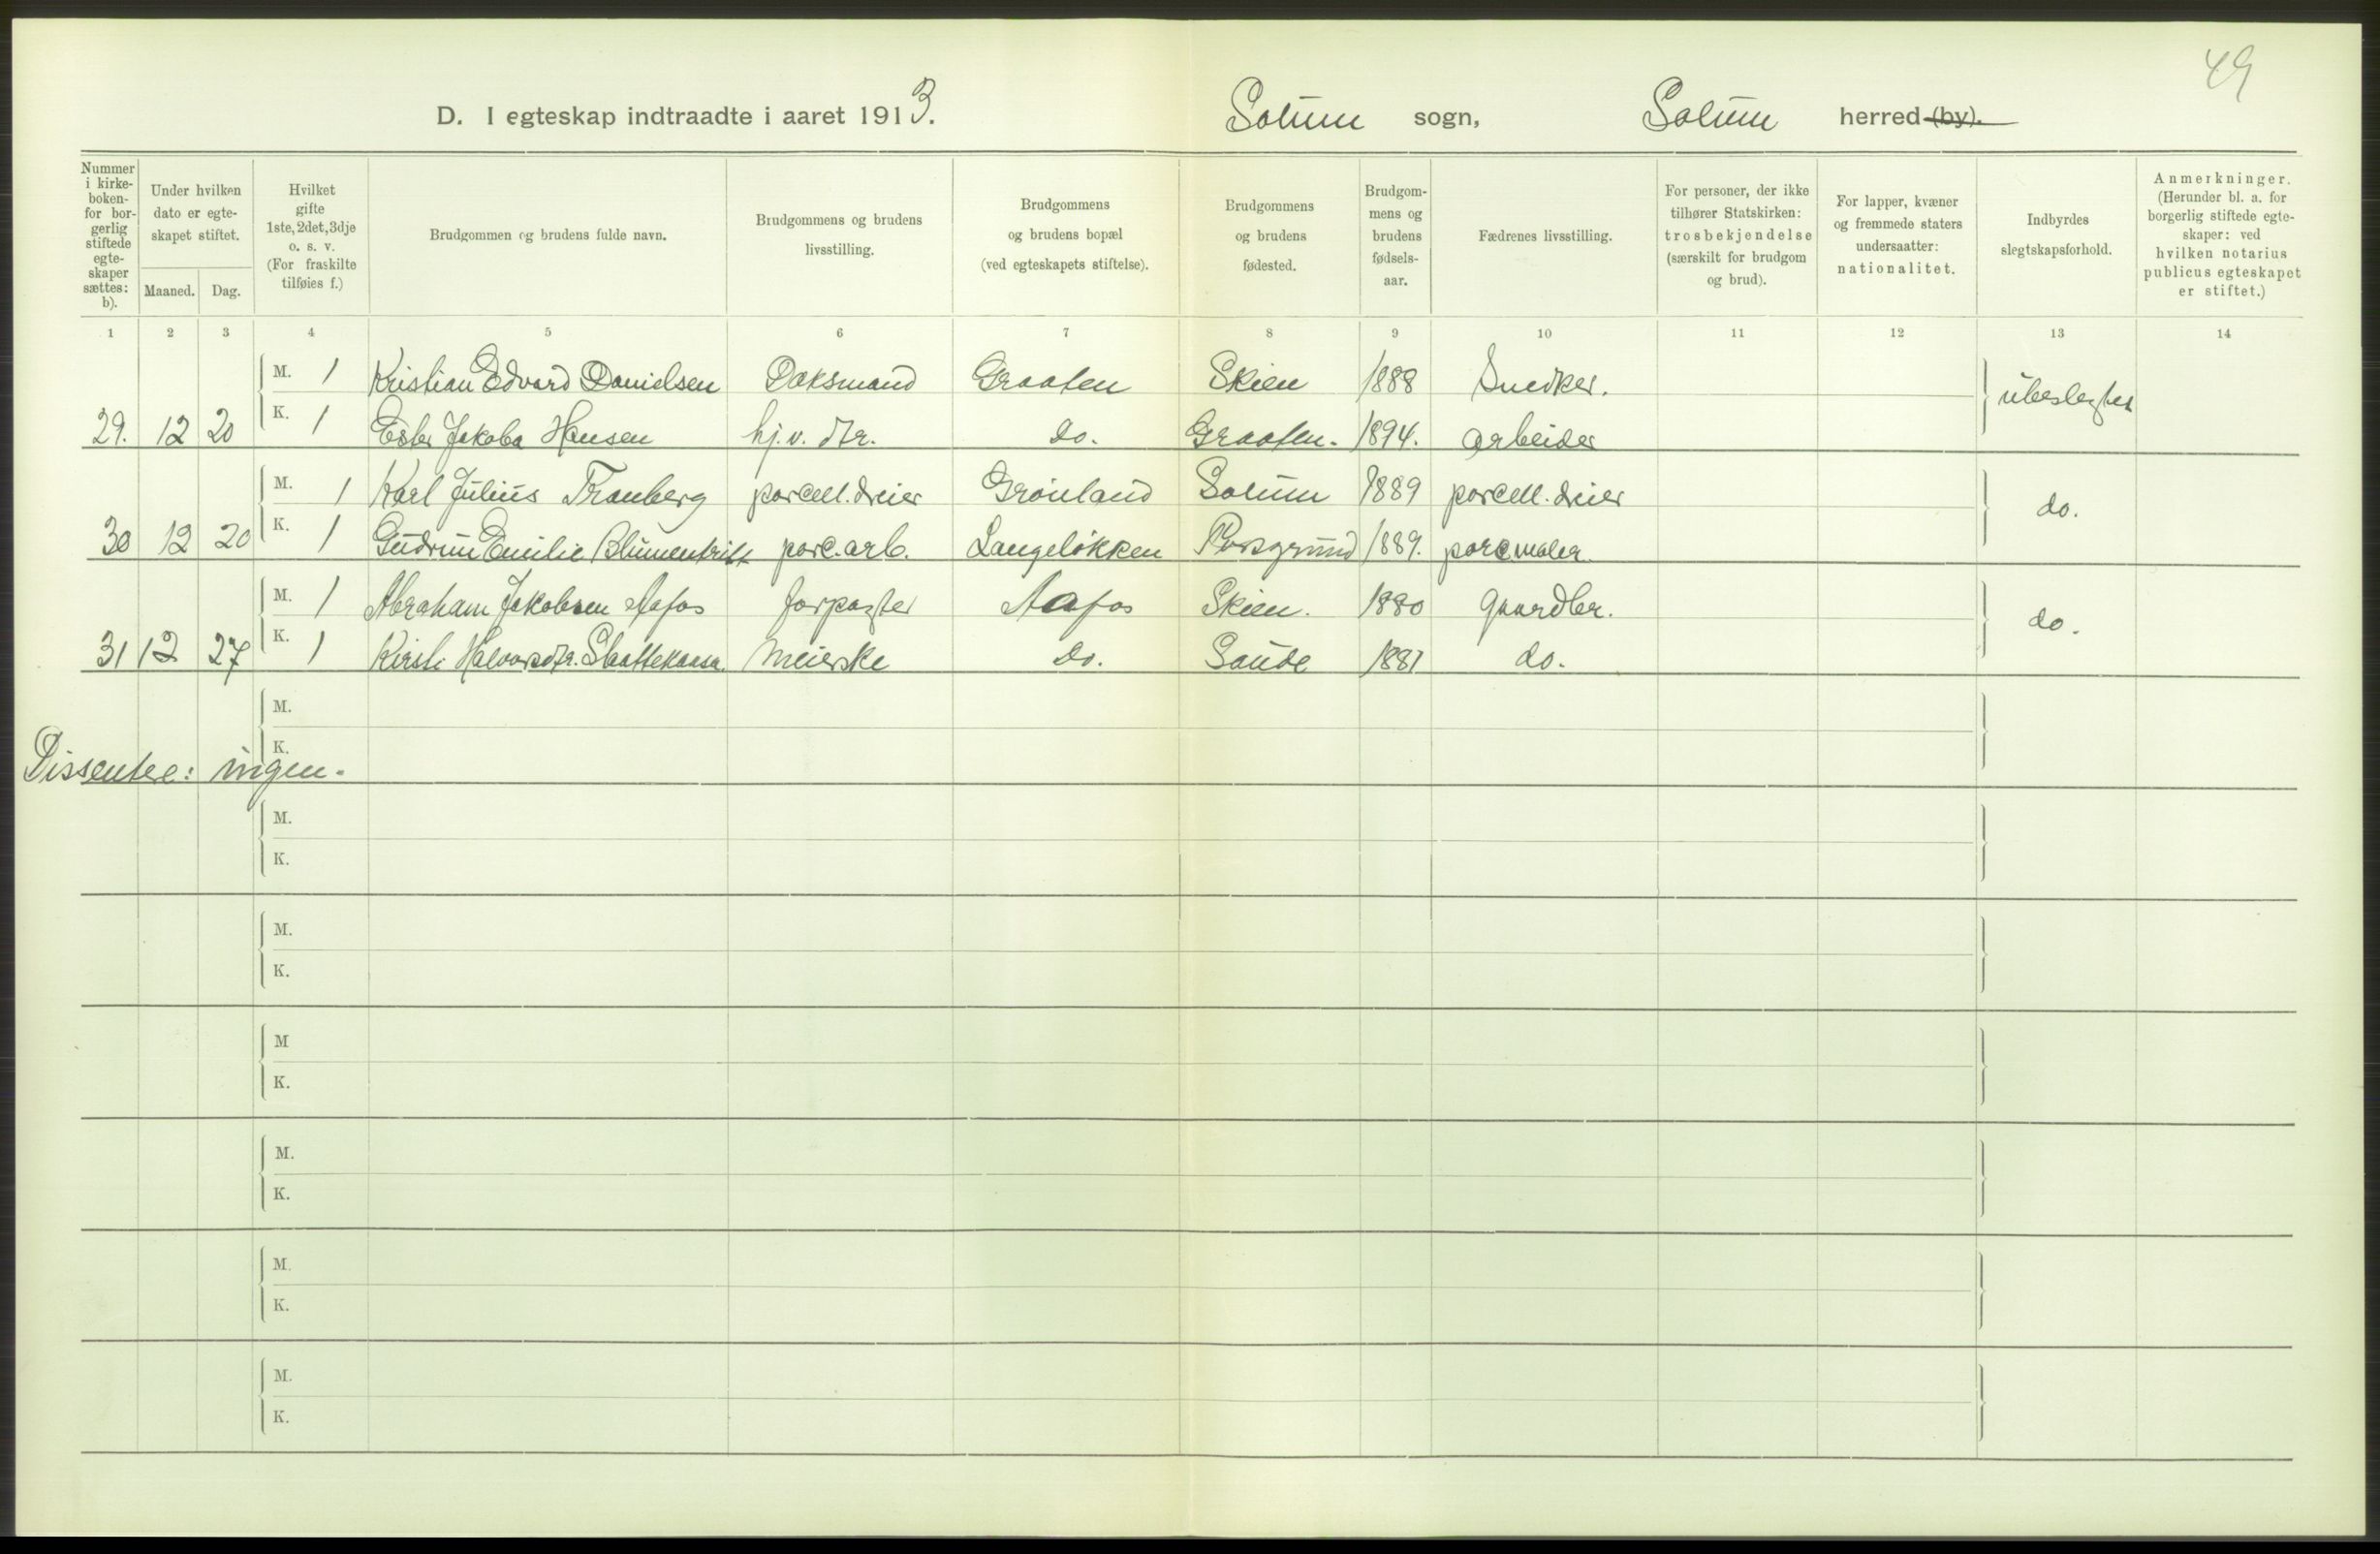 49
D. I egteskap indtraadte i aaret 1913. Solum sogn, Solum herred (by).
Nummer i kirke- boken- for bor- gerlig stiftede egte- skaper sættes: b).
Under hvilken dato er egte- skapet stiftet.
Maaned. Dag.
Hvilket gifte 1ste, 2det, 3dje o. s. v. (For fraskilte tilføies f.)
Brudgommen og brudens fulde navn.
Brudgommens og brudens livsstilling.
Brudgommens og brudens bopæl (ved egteskapets stiftelse).
Brudgommens og brudens fødested.
Brudgom- mens og brudens fødsels- aar.
Fædrenes livsstilling.
For personer, der ikke tilhører Statskirken: trosbekjendelse (særskilt for brudgom og brud).
For lapper, kvæner og fremmede staters undersaatter: nationalitet.
Indbyrdes slegtskapsforhold.
Anmerkninger. (Herunder bl. a. for borgerlig stiftede egte- skaper: ved hvilken notarius publicus egteskapet er stiftet.)
1 2 3 4 5 6 7 8 9 10 11 12 13 14
M. 1 Kristian Edvard Danielsen Doksmand Graaten Skien 1888 Snedker. ubeslegtet
29. 12 20 K. 1 Ester Jakoba Hansen hj. v. dtr. do. Graaten. 1894. arbeider
M. 1 Karl Julius Tranberg porcell. dreier Grönland Solum 1889 porcell. dreier do.
30 12 20 K. 1 Gudrun Emilie Blumentritt porc. arb. Langeløkken Porsgrund 1889. porc maler.
M. 1 Abraham Jakobsen Aafos forpagter Aafos Skien. 1880 gaardbr. do.
31 12 27 K. 1 Kirsti Halvorsdtr. Slaattekaasa Meierske do. Saude 1881 do.
M.
K.
Dissentere: ingen.
M.
K.
M.
K.
M
K.
M.
K.
M.
K.
M.
K.